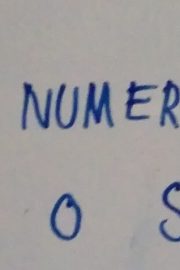 NUMER
O S